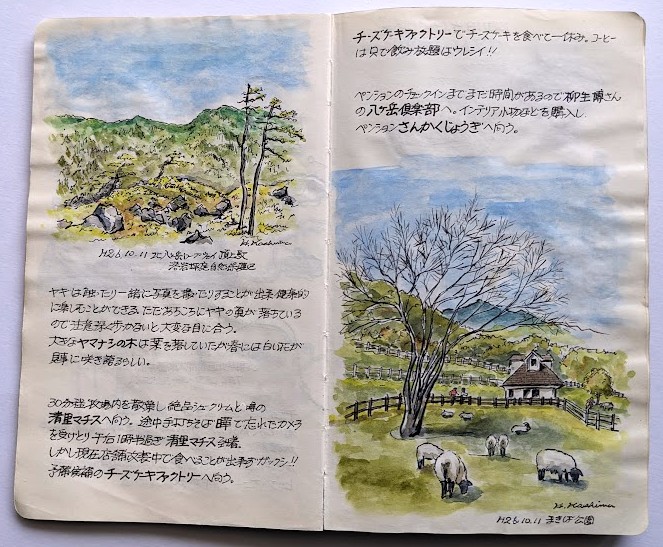 K. Kashima
H26.10.11 北八ヶ岳ロープウェイ 頂上駅
坪庭自然
ヤギは触ったり一緒に写真を撮ったりすることが出来、健康的
に楽しむことができる。ただあちこちにヤギの糞が落ちている
ので注意深く歩かないと大変な目に合う。
大きなヤマナシの木は葉を落していたが春には白い花が
見事に咲き素晴らしい。
30分程 牧場内を散策し 絶品シュークリームと 噂の
清里マチスへ向う。途中手打ちそば で忘れたカメラ
を受けとり 午后1時半過ぎ 清里マチス到着。
しかし現在店舗改装中で食べることが出来ずガックシ!!
予備候補のチーズケキファクトリーへ向う。
チーズケキファクトリーでチーズケーキを食べて一休み。コーヒー
は 只で飲み放題はウレシイ!!
ペンションのチェックインまでまだ時間があるので柳生博さん
の八ヶ岳倶楽部へ。インテリア小物などを購入し
ペンションさんかくじょうぎへ向う。
K. Kashima
H26.10.11 まきば公園